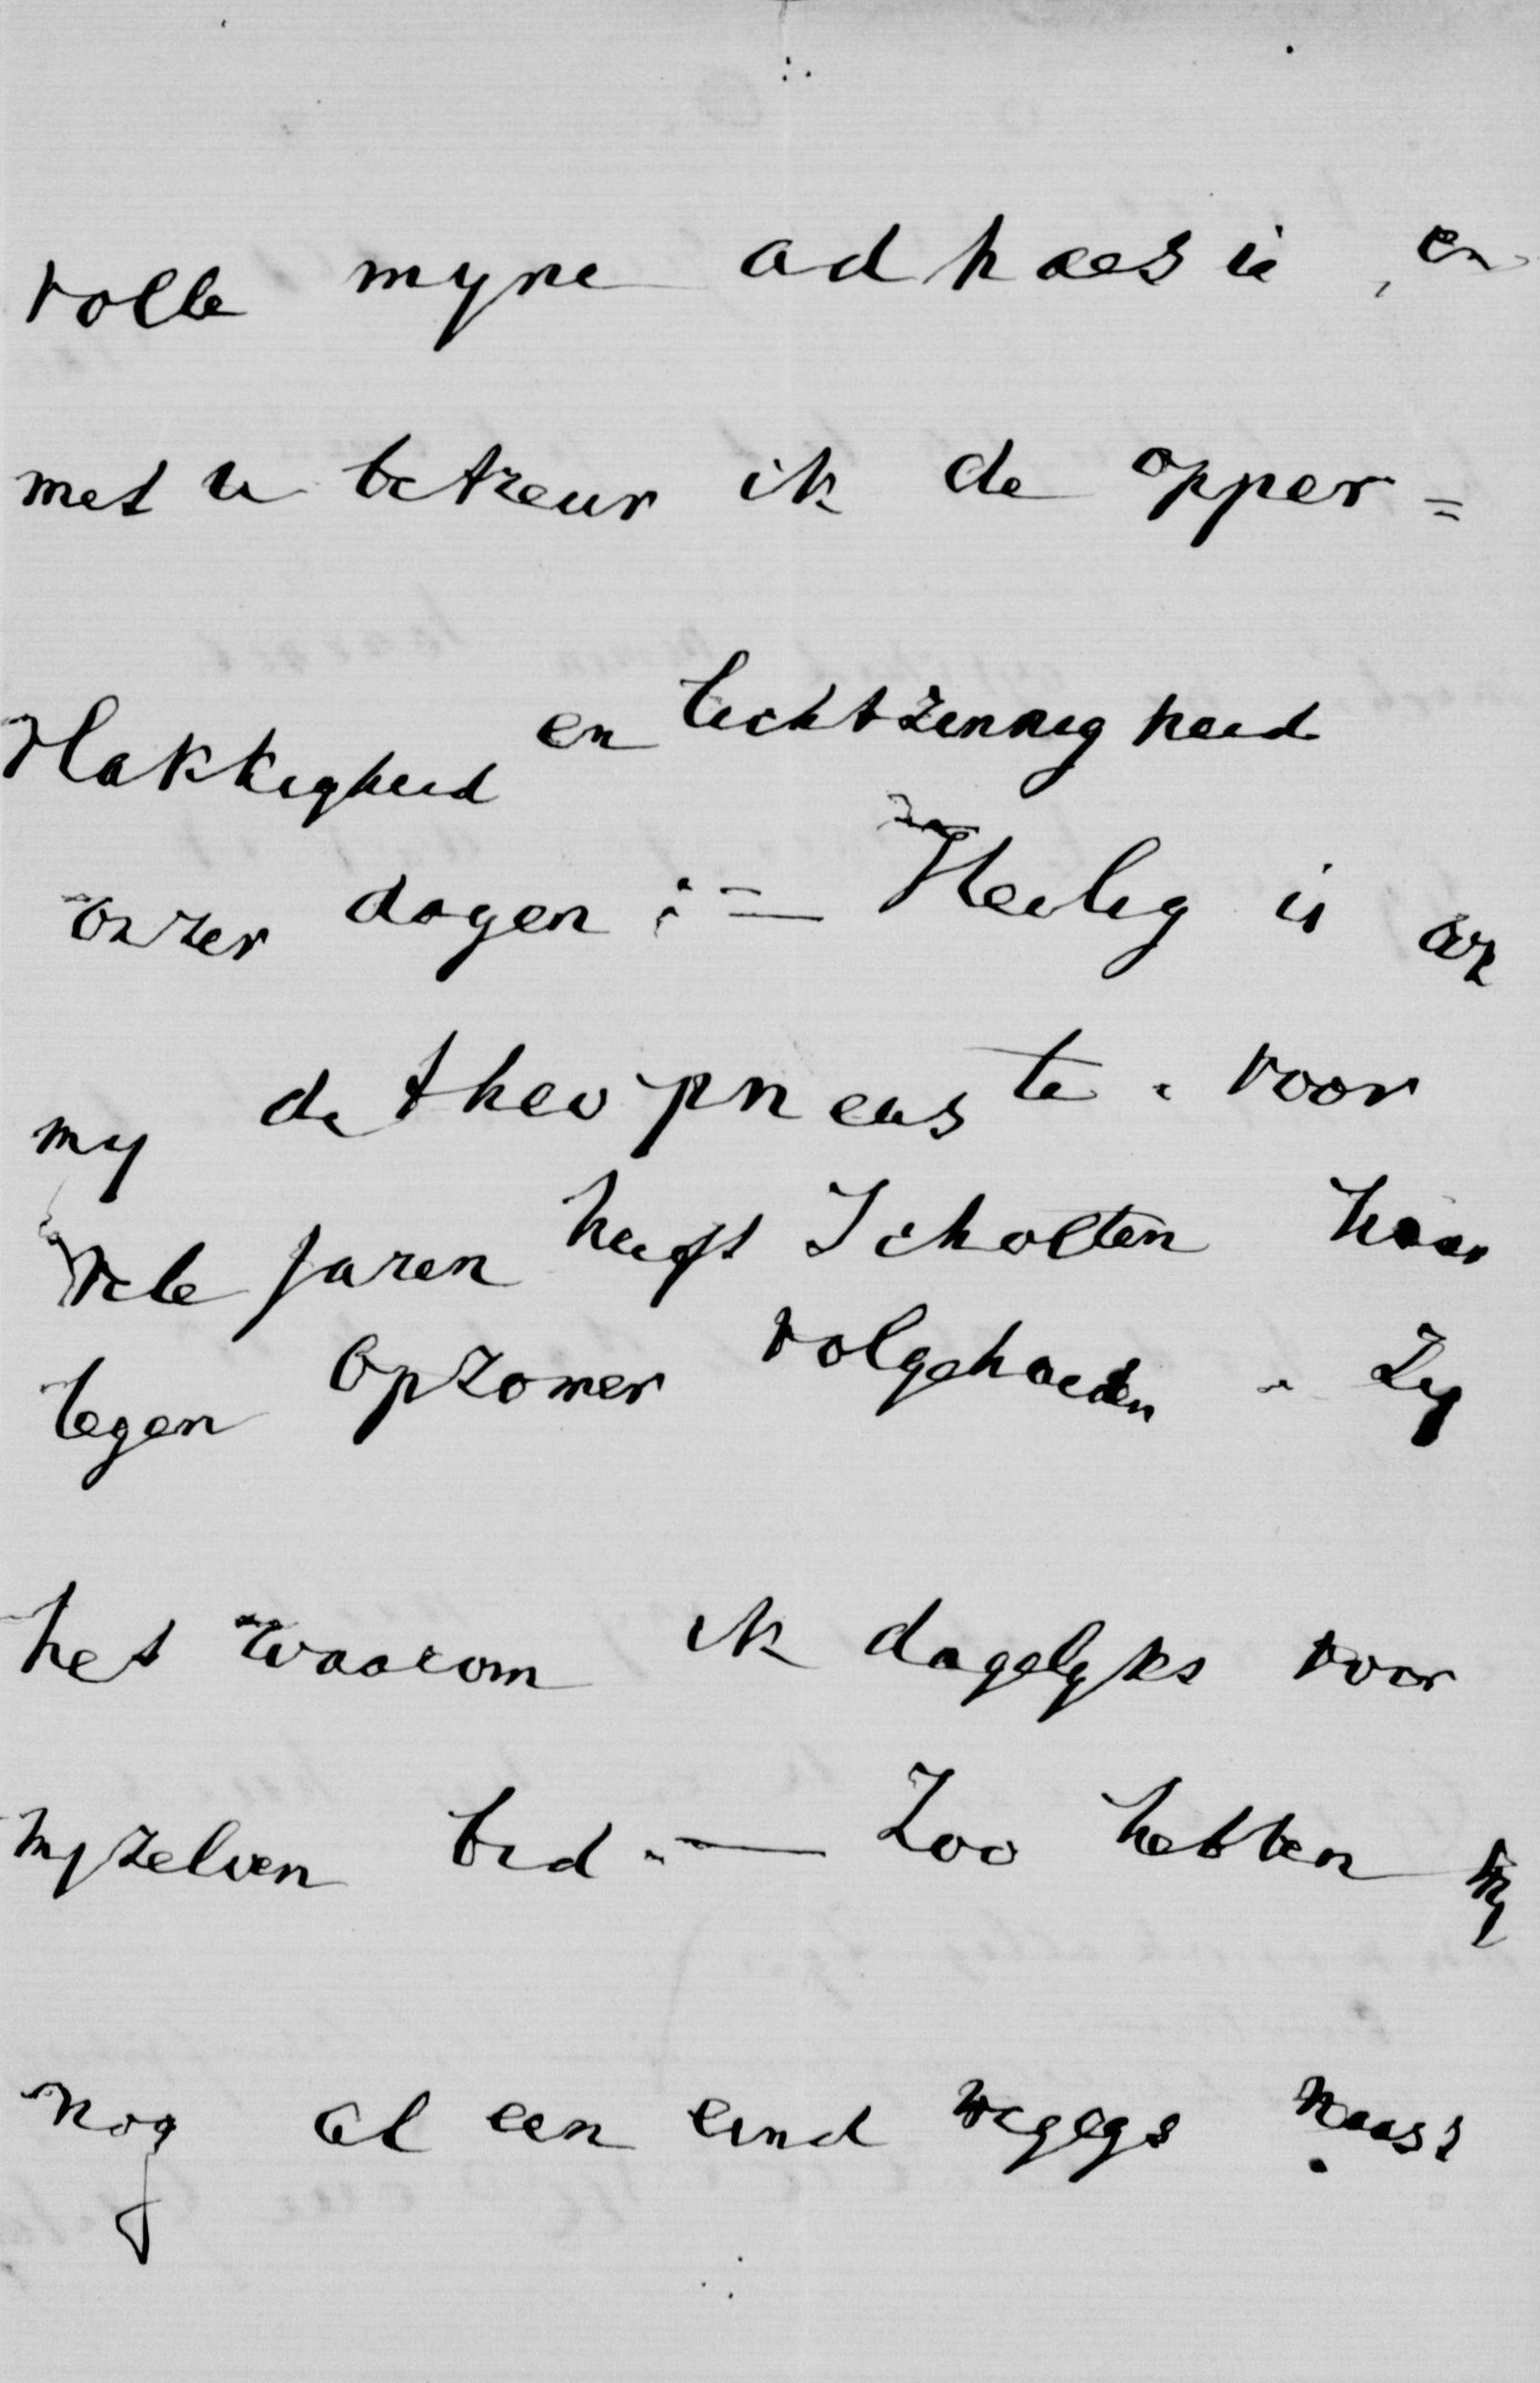 volle myne adhaesie, en
met u betreur ik de opper=
vlakkigheid en lichtzinnigheid
onzer dagen :— Heilig is
my de theopneustie. voor
vele jaren heeft Scholten haar
tegen Opzomer volgehouden. Zy
het waarom ik dagelyks voor
myzelven bid.— Zoo hebben wy
nog al een eind weegs naast